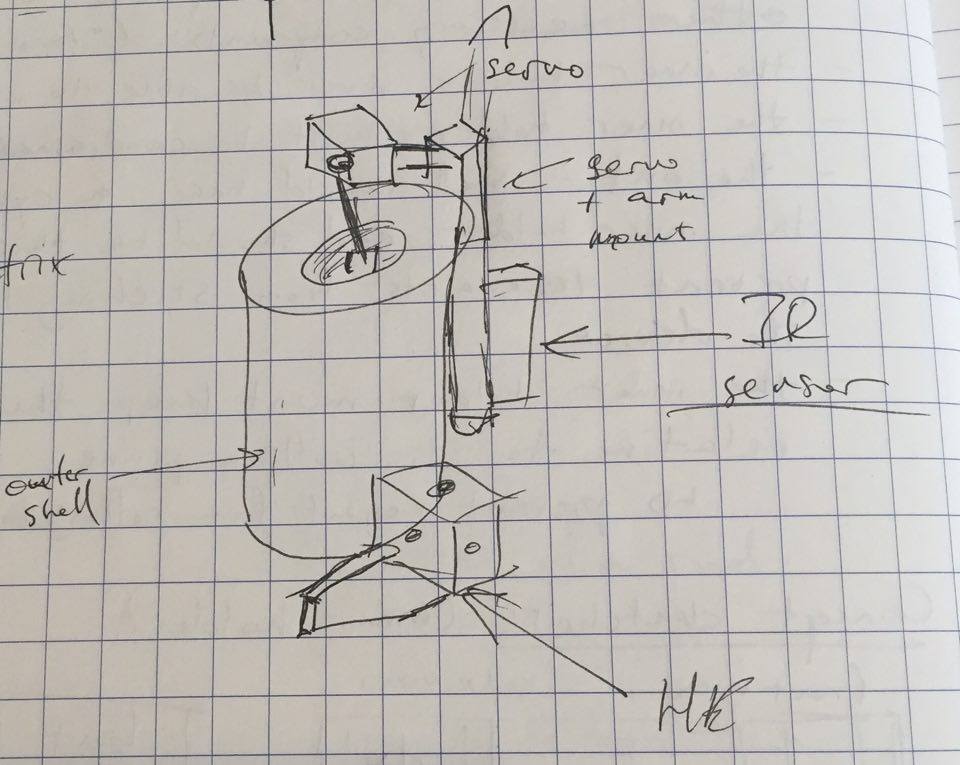 servo
servo
+ arm
mount
IR
sensor
outer
shell